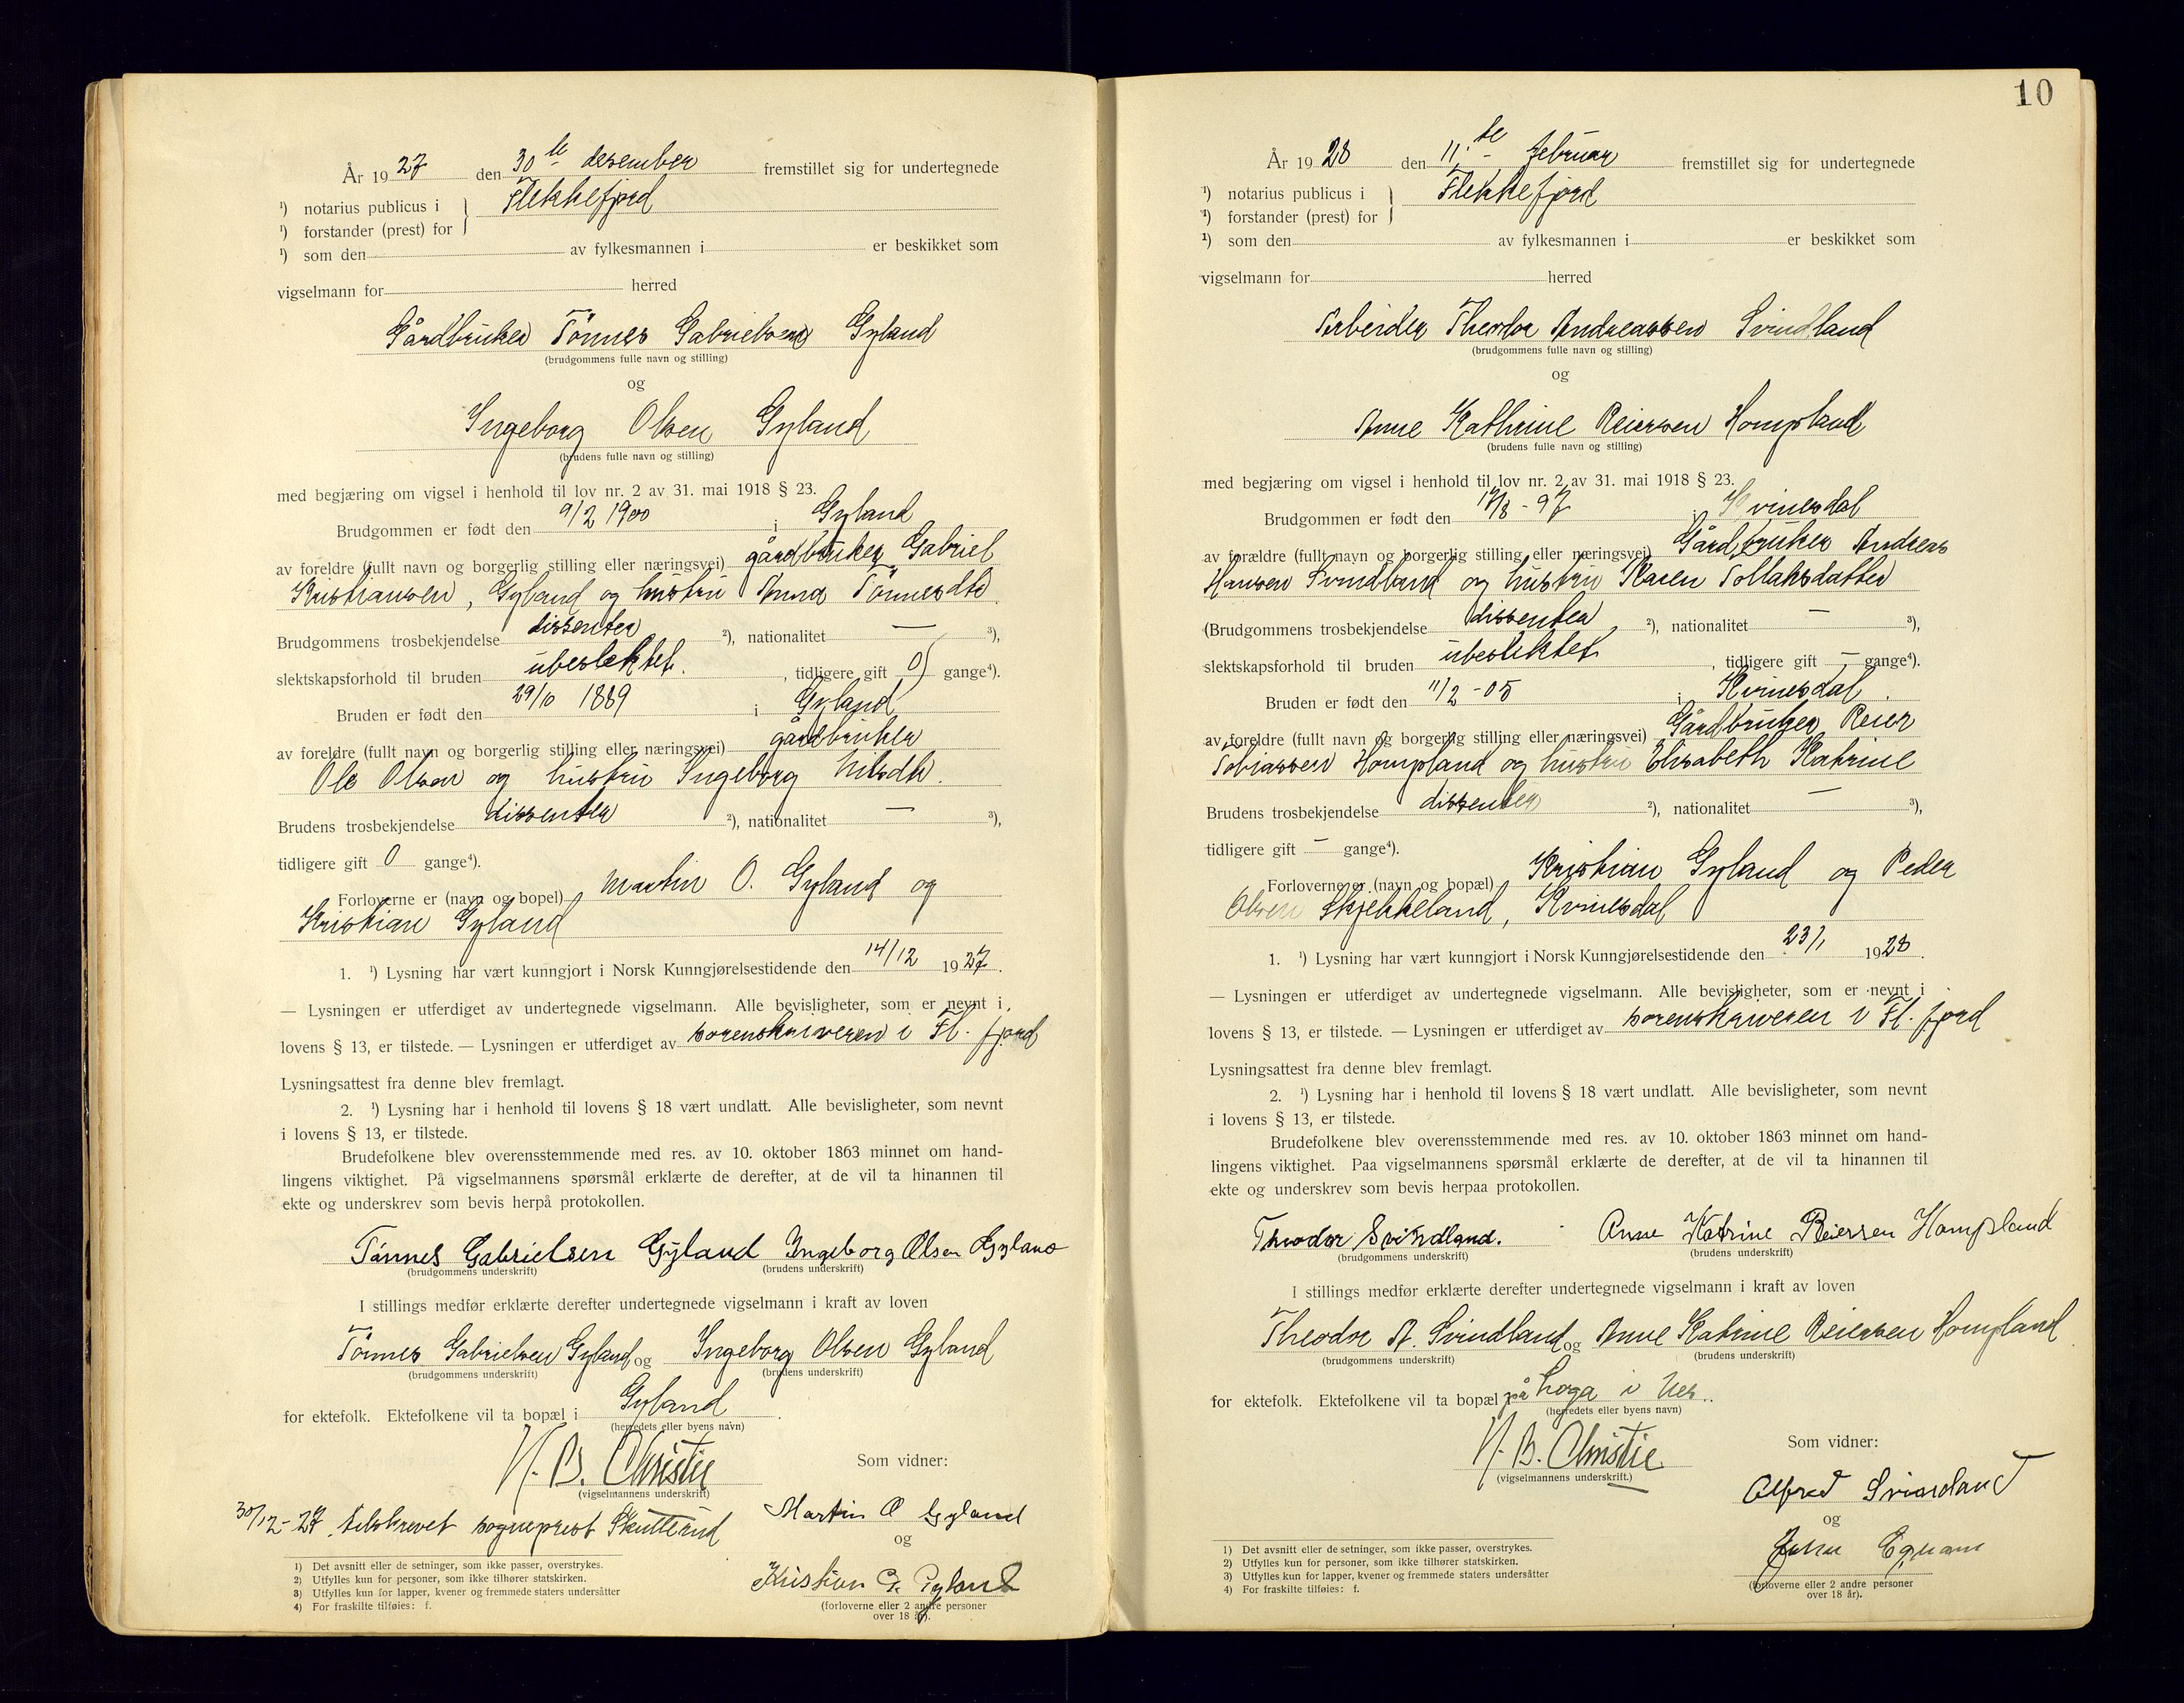 År 19 27 den 30te desember fremstillet sig for undertegnede
¹) notarius publicus i Flekkefjord
¹) forstander (prest) for
¹) som den av fylkesmannen i er beskikket som
vigselmann for herred
Gårdbruker Tönnes Gabrielsen Gyland
(brudgommens fulle navn og stilling)
og
Ingeborg Olsen Gyland
(brudens fulle navn og stilling)
med begjæring om vigsel i henhold til lov nr. 2 av 31. mai 1918 § 23.
Brudgommen er født den 9/2 1900 i Gyland
av foreldre (fullt navn og borgerlig stilling eller næringsvei) gårdbruker Gabriel
Kristiansen, Gyland og hustru Anna Tönnesdtr
Brudgommens trosbekjendelse dissenter ²), nationalitet — ³),
slektskapsforhold til bruden ubeslektet. , tidligere gift 0 gange⁴).
Bruden er født den 29/10 1889 i Gyland
av foreldre (fullt navn og borgerlig stilling eller næringsvei) gårdbruker
Ole Olsen og hustru Ingeborg Nilsdtr.
Brudens trosbekjendelse dissenter ²), nationalitet — ³),
tidligere gift 0 gange⁴).
Forloverne er (navn og bopel) Martin O. Gyland og
Kristian Gyland
1. ¹) Lysning har vært kunngjort i Norsk Kunngjørelsestidende den 14/12 1927.
— Lysningen er utferdiget av undertegnede vigselmann. Alle bevisligheter, som er nevnt i
lovens § 13, er tilstede. — Lysningen er utferdiget av sorenskriveren i Fl. fjord
Lysningsattest fra denne blev fremlagt.
2. ¹) Lysning har i henhold til lovens § 18 vært undlatt. Alle bevisligheter, som nevnt
i lovens § 13, er tilstede.
Brudefolkene blev overensstemmende med res. av 10. oktober 1863 minnet om hand-
lingens viktighet. På vigselmannens spørsmål erklærte de derefter, at de vil ta hinannen til
ekte og underskrev som bevis herpå protokollen.
Tönnes Gabrielsen Gyland Ingeborg Olsen Gyland
(brudgommens underskrift) (brudens underskrift)
I stillings medfør erklærte derefter undertegnede vigselmann i kraft av loven
Tönnes Gabrielsen Gyland og Ingeborg Olsen Gyland
(brudgommens underskrift) (brudens underskrift)
for ektefolk. Ektefolkene vil ta bopæl i Gyland
(herredets eller byens navn)
H. B. Christie
(vigselmannens underskrift)
Som vidner:
30/12-27 tilskrevet sogneprest Skutterud
Martin O Gyland
og
Kristian G. Gyland
(forloverne eller 2 andre personer
over 18 år).
1) Det avsnitt eller de setninger, som ikke passer, overstrykes.
2) Utfylles kun for personer, som ikke tilhører statskirken.
3) Utfylles kun for lapper, kvener og fremmede staters undersåtter
4) For fraskilte tilføies: f.
10
År 19 28 den 11.te februar fremstillet sig for undertegnede
¹) notarius publicus i Flekkefjord
¹) forstander (prest) for
¹) som den av fylkesmannen i er beskikket som
vigselmann for herred
Arbeider Theodor Andreassen Svindland
(brudgommens fulle navn og stilling)
og
Anne Kathrine Reiersen Hompland
(brudens fulle navn og stilling)
med begjæring om vigsel i henhold til lov nr. 2 av 31. mai 1918 § 23.
Brudgommen er født den /8 - 97 i Kvinesdal
av forældre (fullt navn og borgerlig stilling eller næringsvei) Gårdbruker Andreas
Hansen Svindland og hustru Karen Tollaksdatter
(Brudgommens trosbekjendelse dissenter ²), nationalitet — ³),
slektskapsforhold til bruden ubeslektet , tidligere gift — gange⁴).
Bruden er født den 11/2 - 05 i Kvinesdal.
av foreldre (fullt navn og borgerlig stilling eller næringsvei) Gårdbruker Reier
Tobiassen Hompland og hustru Elisabeth Katrine
Brudens trosbekjendelse dissenter ²), nationalitet — ³),
tidligere gift — gange⁴).
Forloverne er (navn og bopæl) Kristian Gyland og Peder
Olsen Skjekkeland, Kvinesdal
1. ¹) Lysning har vært kunngjort i Norsk Kunngjørelsestidende den 23/1 1928.
— Lysningen er utferdiget av undertegnede vigselmann. Alle bevisligheter, som er nevnt i
lovens § 13, er tilstede. — Lysningen er utferdiget av sorenskriveren i Fl. fjord
Lysningsattest fra denne blev fremlagt.
2. ¹) Lysning har i henhold til lovens § 18 vært undlatt. Alle bevisligheter, som nevnt
i lovens § 13, er tilstede.
Brudefolkene blev overensstemmende med res. av 10. oktober 1863 minnet om hand-
lingens viktighet. Paa vigselmannens spørsmål erklærte de derefter, at de vil ta hinannen til
ekte og underskrev som bevis herpaa protokollen.
Theodor Svindland. Anne Katrine Reiersen Hompland
(brudgommens underskrift) (brudens underskrift)
I stillings medfør erklærte derefter undertegnede vigselmann i kraft av loven
Theodor A. Svindland og Anne Katrine Reiersen Hompland
(brudgommens underskrift) (brudens underskrift)
for ektefolk. Ektefolkene vil ta bopæl på Loga i Nes.
(herredets eller byens navn)
H. B. Christie
(vigselmannens underskrift.)
Som vidner:
Alfred Svindland
og
John
(forloverne eller 2 andre personer
over 18 år).
1) Det avsnitt eller de setninger, som ikke passer, overstrykes.
2) Utfylles kun for personer, som ikke tilhører statskirken.
3) Utfylles kun for lapper, kvener og fremmede staters undersåtter
4) For fraskilte tilføies: f.